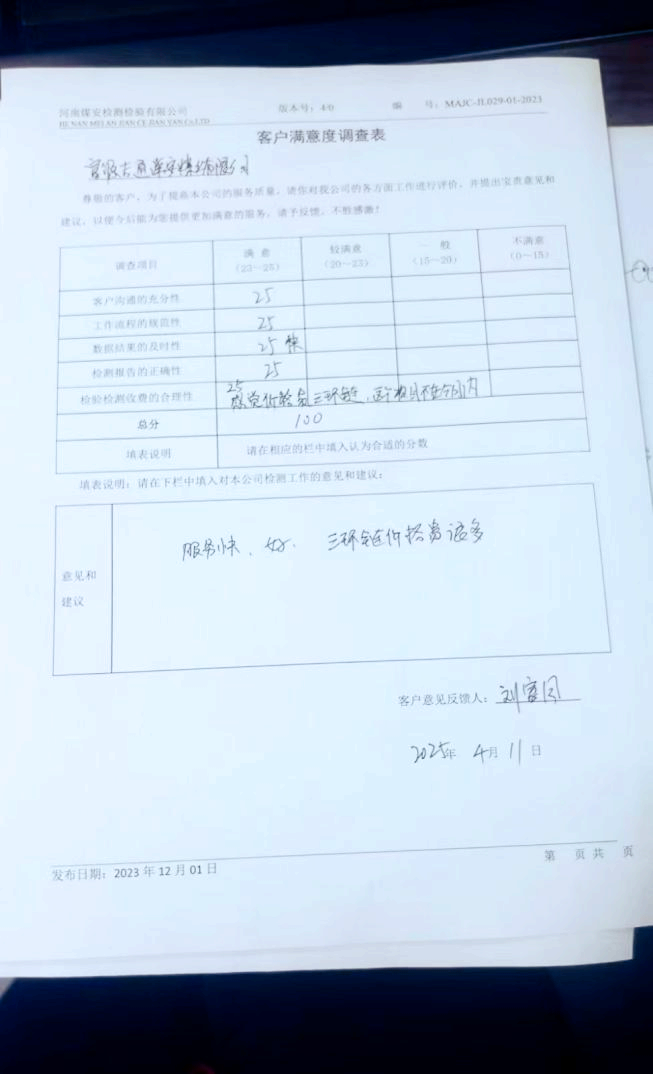 河南煤安检测检验有限公司 版本号：4/0 编 号：MAJC-JL029-01-2023
HE NAN MEI AN JIAN CE JIAN YAN Co.LTD
客户满意度调查表
尊敬的客户，为了提高本公司的服务质量，请你对我公司的各方面工作进行评价，并提出宝贵意见和
建议，以便今后能为您提供更加满意的服务，请予反馈，不胜感激！
调查项目 满 意 较满意 一 般 不满意
（23～25） （20～23） （15～20） （0～15）
客户沟通的充分性 25
工作流程的规范性 25
数据结果的及时性 25 快
检测报告的正确性 25
检验检测收费的合理性 25
感觉价格贵三环链
总分 100
填表说明 请在相应的栏中填入认为合适的分数
填表说明：请在下栏中填入对本公司检测工作的意见和建议：
意见和
建议
服务快、好. 三环链价格贵
客户意见反馈人：刘
2025年 4月 11日
发布日期：2023 年 12 月 01 日 第 页 共 页